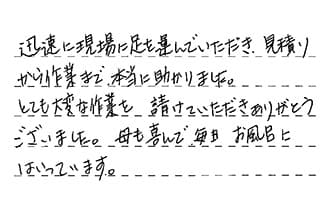 迅速に現場に足を運んでいただき、見積り
から作業まで、本当に助かりました。
とても大変な作業を、請けていただきありがとう
ございました。母も喜んで、毎日お風呂に
はいっています。